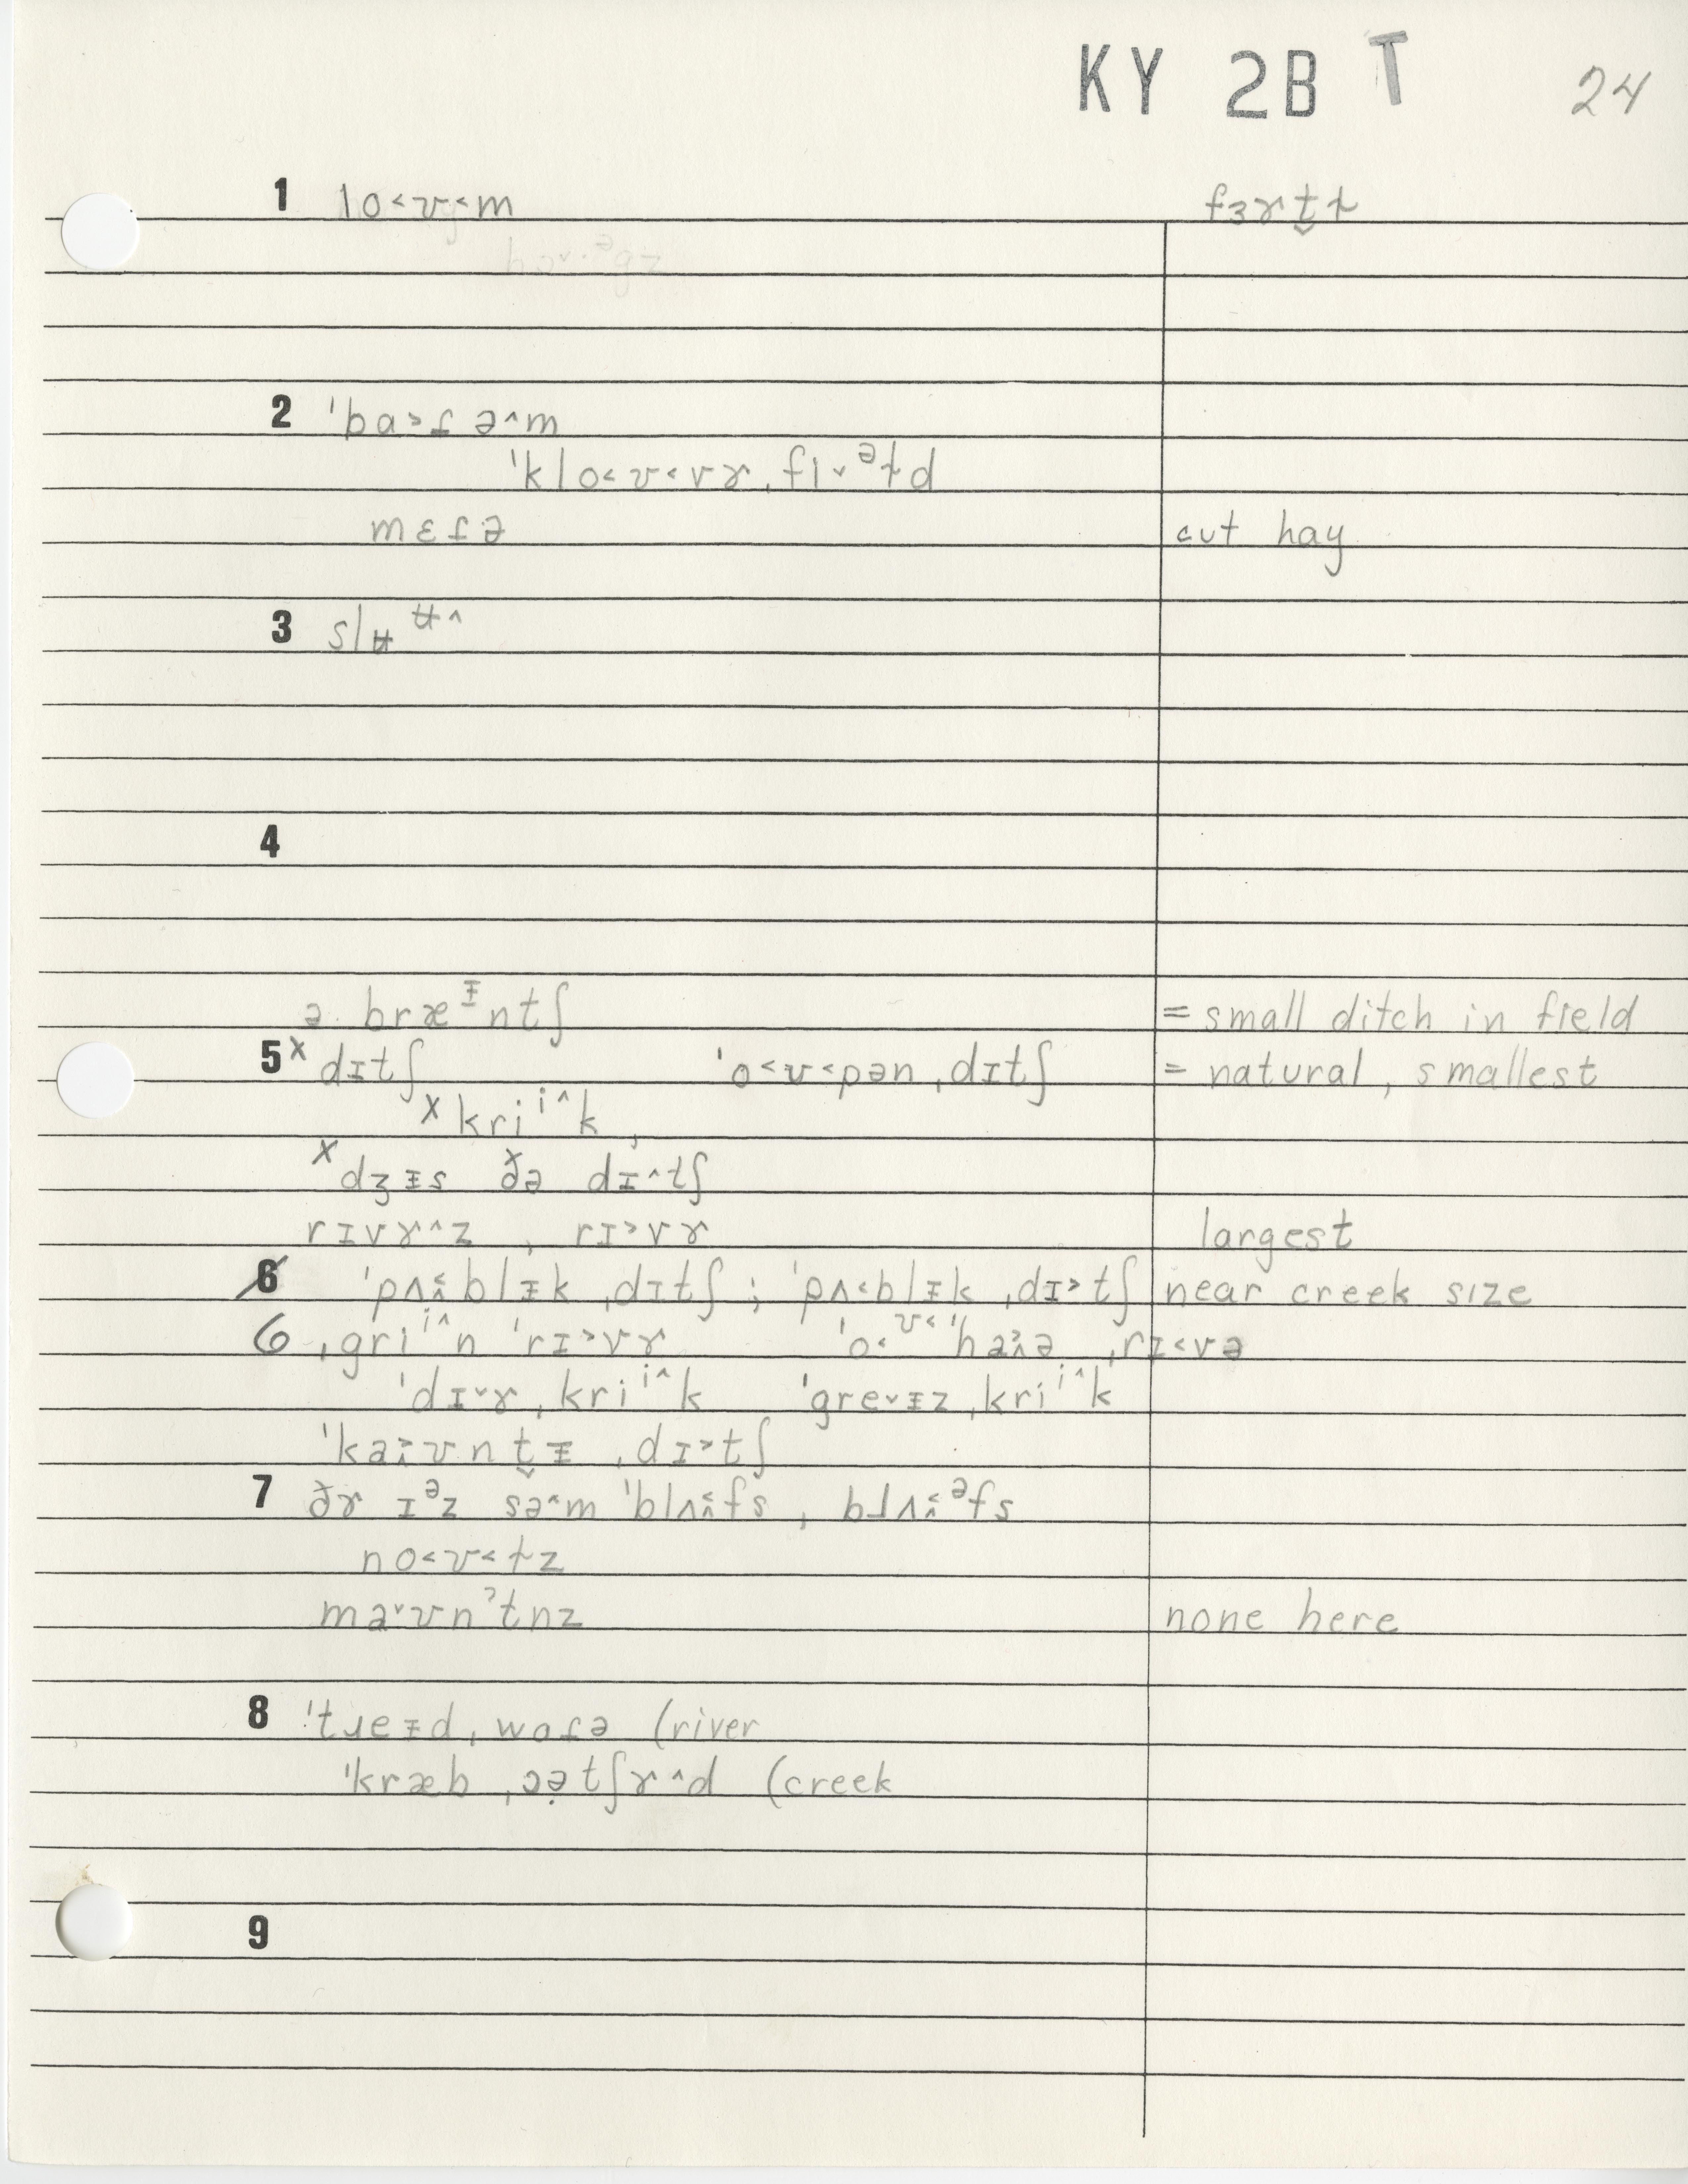 KY 2B T 24
1 lo˂ʊ˂m fɜɚt̬ɫ
2 ˈba˃ɾə˄m
ˈklo˂ʊ˂vɚˌfɪ˅ᵊɫd
mɛɾə cut hay
3 slʉᵾ˄
4
ə bræᵻntʃ = small ditch in field
5 x dɪtʃ ˈo˂ʊ˂pənˌdɪtʃ = natural, smallest
x kriⁱ˄k,
x dʒᵻs ðə dɪ˄tʃ
rɪvɚ˄z, rɪ˃vɚ largest
6 ˈpʌ˂blᵻkˌdɪtʃ; ˈpʌ˂blᵻkˌdɪ˃tʃ near creek size
6 ˌgriⁱ˄n ˈrɪ˃vɚ ˈo˂ᶷ˂ˈhaə ˌrɪ˂və
ˈdɪ˅ɚˌkriⁱ˄k ˈgre˅ᵻzˌkriⁱ˄k
ˈka˃ʊnt̬ᵻˌdɪ˃tʃ
7 ðɚ ɪᵊz sə˄m ˈblʌ˂fs, blʌ˂ᵊfs
no˂ʊ˂ɫz
ma˅ʊnˀtnz none here
8 ˈtɹeᵻdˌwɑɾə (river
ˈkræbˌɔə̣tʃɚ˄d (creek
9